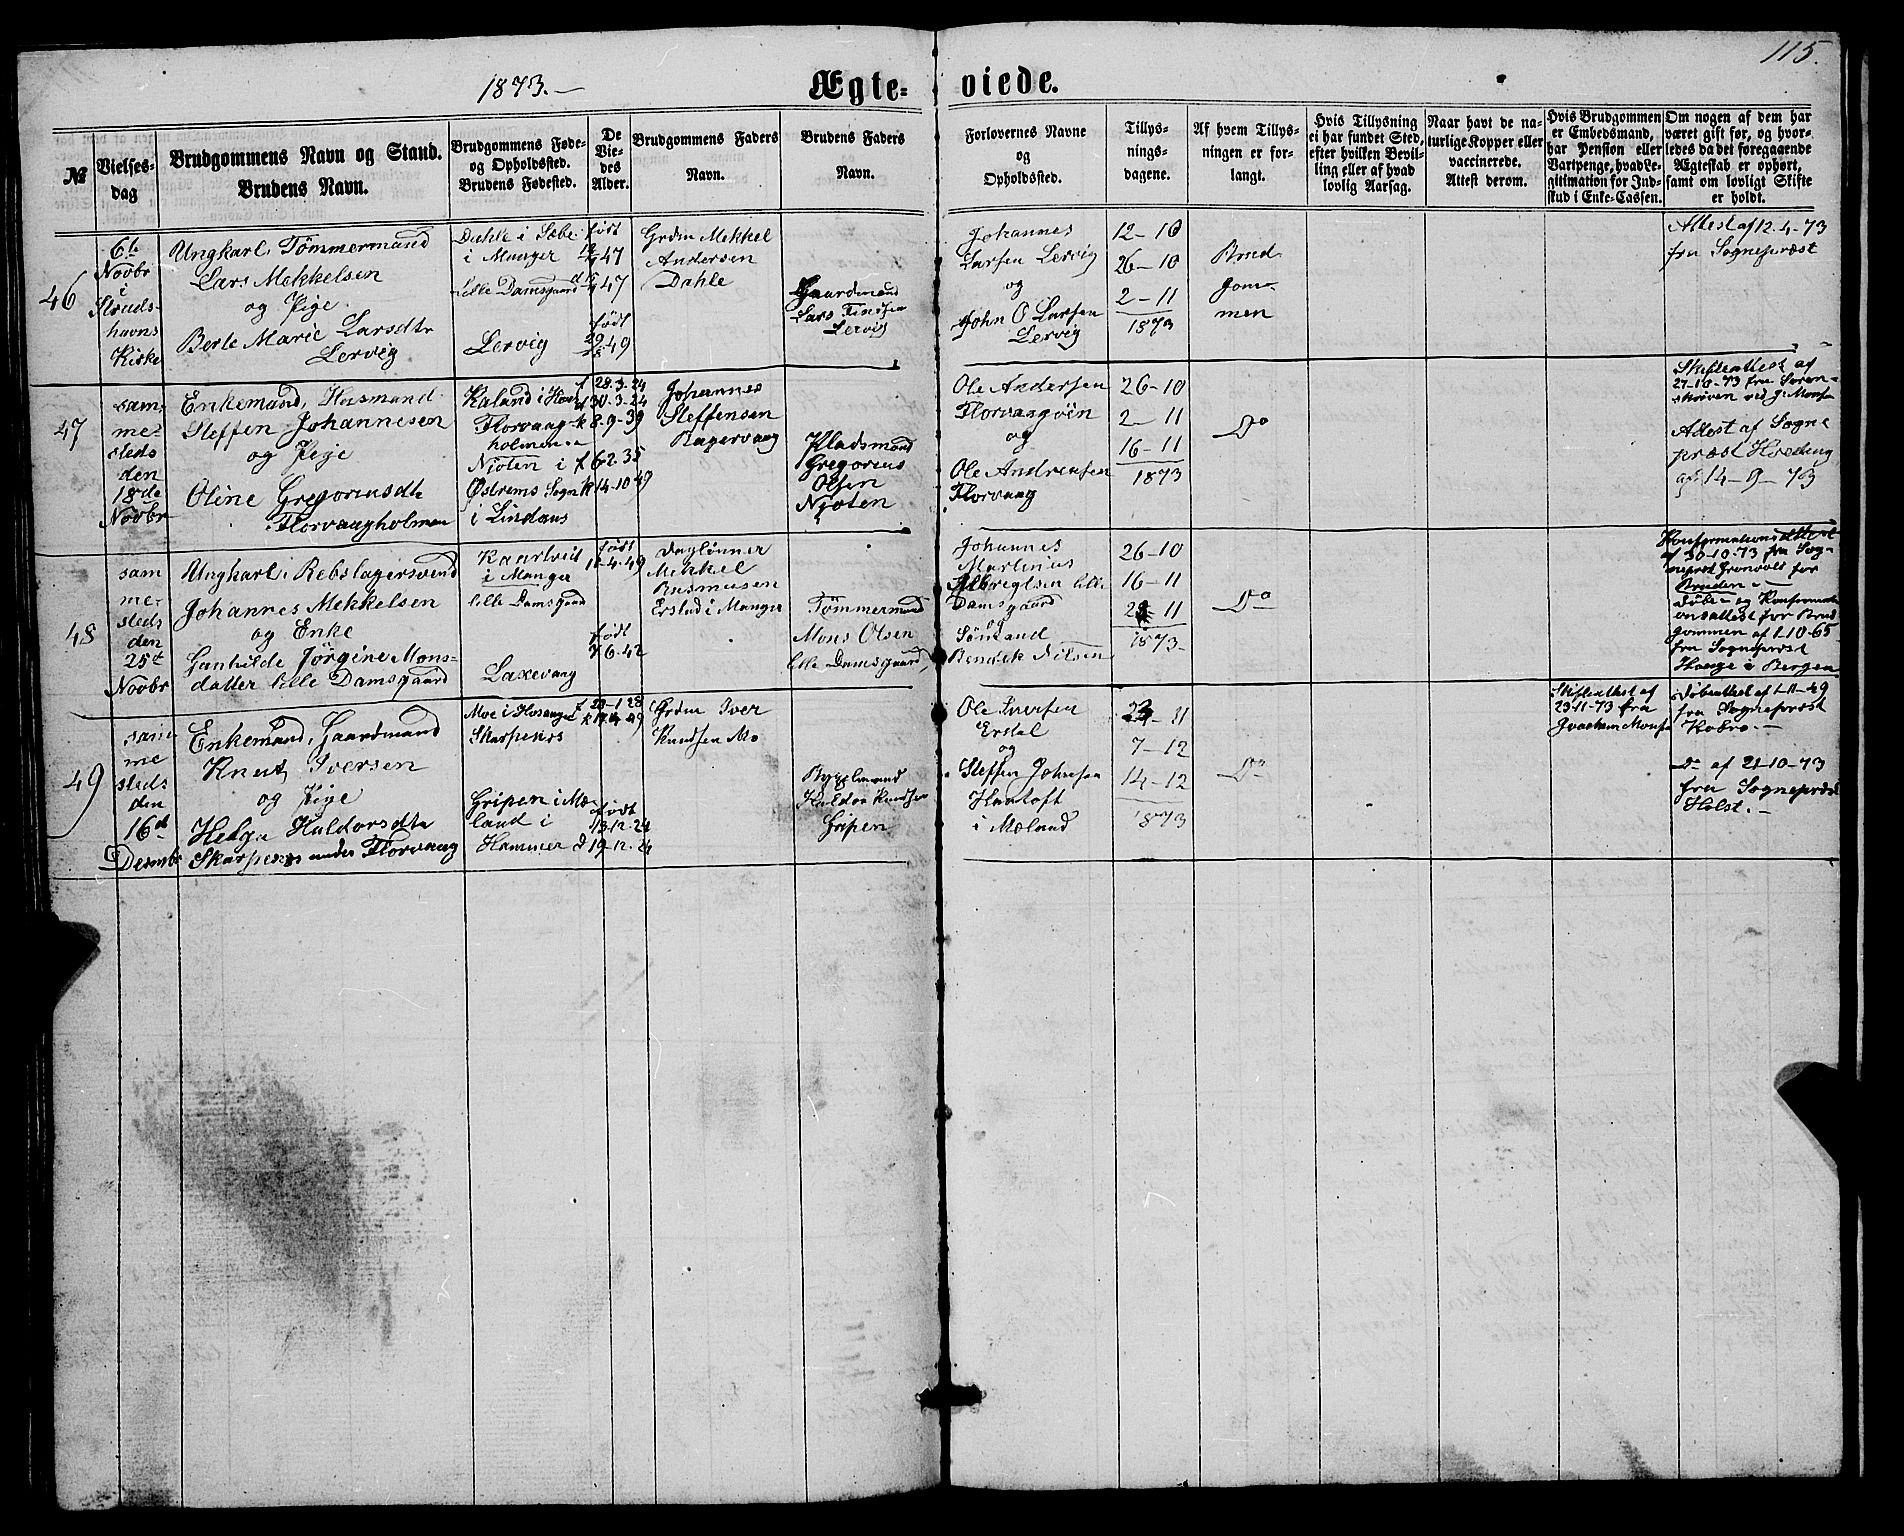 115.
1873.—
Ægte-
viede.
№
Vielses-
dag
Brudgommens Navn og Stand.
Brudens Navn.
Brudgommens Føde-
og Opholdssted.
Brudens Fødested.
De
Vie-
des
Alder.
Brudgommens Faders
Navn.
Brudens Faders
Navn.
Forlovernes Navne
og
Opholdssted.
Tillys-
nings-
dagene.
Af hvem Tillys-
ningen er for-
langt.
Hvis Tillysning
ei har fundet Sted,
efter hvilken Bevil-
ling eller af hvad
lovlig Aarsag.
Naar havt de na-
turlige Kopper eller
vaccinerede.
Attest derom.
Hvis Brudgommen
er Embedsmand,
har Pension eller
Vartpenge, hvad Le-
gitimation for Ind-
skud i Enke-Cassen.
Om nogen af dem har
været gift før, og hvor-
ledes da det foregaaende
Ægteskab er ophørt,
samt om lovligt Skifte
er holdt.
46
6te
Novbr
i
Struds-
havns
Kirke
Ungkarl, Tømmermand
Lars Mekkelsen
og Pige
Berte Marie Larsdtr
Lervig
Dahle i Sæbø
i Manger
Lille Damsgaard
Lervig
født
47
47
født
49
Grdm Mekkel
Andersen
Dahle
Gaardmand
Lars
Lervig
Johannes
Larsen Lervig
og
John O Larsen
Lervig
12-10
26-10
2-11
1873
Brud
gom-
men
Attest af 12-4-73
fra Sogneprest
47
sam-
me-
steds
den
18de
Novbr
Enkemand, Husmand
Steffen Johannesen
og Pige
Oline Gregoriusdtr
Florvaagholmen
Kaland i
Florvaag-
holmene
Njøten i
Østrems Sogn
i Lindaas
f 28-3-24
d 30-3-24
k 8-9-39
f 6-2-35
k 14-10-49
Johannes
Steffensen
Ragervaag
Pladsmand
Gregorius
Olsen
Njøten
Ole Andersen
Florvaagøen
og
Ole Andreasen
Florvaag
26-10
2-11
16-11
1873
Do
Skifteattest af
27-10-73 fra Soren-
skriven ved J. Monsen
Attest af Sogne
præst Hveding
af 14-9-73
48
sam
me-
steds
den
25de
Novbr
Ungkarl, Rebslagersvend
Johannes Mekkelsen
og Enke
Gunhilde Jørgine Mons-
datter lille Damsgaard
Kaartveit
i Manger
lille Damsgaard
Laxevaag
født
18-4-49
født
7-6-42
Daglønner
Mekkel
Rasmusen
Erstad i Manger
Tømmermand
Mons Olsen
lille Damsgaard
Johannes
Martinus
Albregtsen lille
Damsgaard
og
Sømand
Bendik Nilsen
26-10
16-11
23-11
1873-
Do
Konformationsattest
af 30-10-73 fra Sog-
neprst Grønvold for
Bruden —
Døbe- og Konforma-
onsattest for Brud
gommen af 1-10-65
fra Sogneprest
Hauge i Bergen
49
sam-
me
steds
den
16de
Desmbr
Enkemand, Gaardmand
Knut Iversen
og Pige
Helga Haldorsdtr
Skarpenes under Florvaag
Moe i Hosanger
Skarpenes
Gripen i Mæ-
land i
Hammer
f 20-1-28
k 49
født
13-12-24
d 19-12-24
Grdm Iver
Knudsen Mo
Bygselmand
Haldor Knudsen
Gripen
Ole Iversen
Erstad
og
Steffen Johnsen
Hantoft
i Mæland
23-11
7-12
14-12
1873
Do
Skifteattest af
29-11-73 fra
Joachum Monsen
Døbeattest af 1-11-49
fra Sogneprest
Kobro.—
Do af 21-10-73
fra Sogneprest
Holst.—